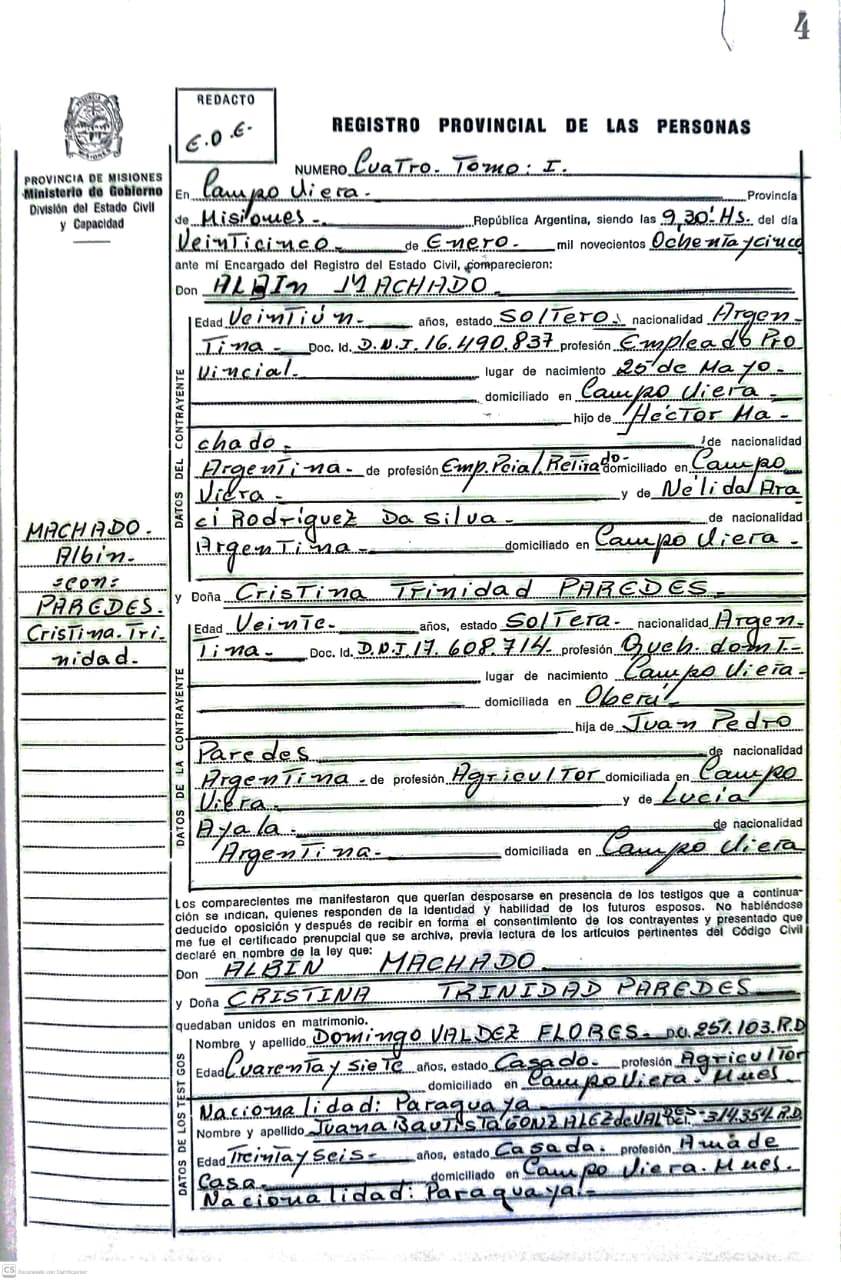 4
REDACTO
E.O.E.
REGISTRO PROVINCIAL DE LAS PERSONAS
PROVINCIA DE MISIONES
Ministerio de Gobierno
División del Estado Civil
y Capacidad
NUMERO Cuatro. Tomo: I.
En Campo Viera. Provincia
de Misiones - República Argentina, siendo las 9,30 Hs. del día
Veinticinco de Enero. mil novecientos Ochenta y cinco
ante mí Encargado del Registro del Estado Civil, comparecieron:
Don ALBIN MACHADO
DATOS DEL CONTRAYENTE
Edad Veintiún - años, estado Soltero. nacionalidad Argen-
tina - Doc. Id. D.N.I. 16.490.837 profesión Empleado Pro
vincial. lugar de nacimiento 25 de Mayo.
domiciliado en Campo Viera -
hijo de Héctor Ma-
chado. de nacionalidad
Argentina - de profesión Emp. Pcial. Retirado- domiciliado en Campo
Viera - y de Nélida Ara
ci Rodríguez Da Silva - de nacionalidad
Argentina - domiciliado en Campo Viera -
MACHADO.
Albin-
=con=
PAREDES.
Cristina. Tri-
nidad.
y Doña Cristina Trinidad PAREDES.
DATOS DE LA CONTRAYENTE
Edad Veinte- años, estado Soltera. nacionalidad Argen-
tina - Doc. Id. D.N.I 17.608.714. profesión Queh. domt-
lugar de nacimiento Campo Viera-
domiciliada en Oberá
hija de Juan Pedro
Paredes de nacionalidad
Argentina - de profesión Agricultor domiciliada en Campo
Viera. y de Lucía
Ayala - de nacionalidad
Argentina - domiciliada en Campo Viera
Los comparecientes me manifestaron que querían desposarse en presencia de los testigos que a continua-
ción se indican, quienes responden de la identidad y habilidad de los futuros esposos. No habiéndose
deducido oposición y después de recibir en forma el consentimiento de los contrayentes y presentado que
me fue el certificado prenupcial que se archiva, previa lectura de los artículos pertinentes del Código Civil
declaré en nombre de la ley que:
Don ALBIN MACHADO
y Doña CRISTINA TRINIDAD PAREDES
quedaban unidos en matrimonio.
DATOS DE LOS TESTIGOS
Nombre y apellido Domingo VALDEZ FLORES - 251.103. R.D
Edad Cuarenta y siete años, estado Casado - profesión Agricultor
domiciliado en Campo Viera - Mnes
Nacionalidad: Paraguaya -
Nombre y apellido Juana Bautista GONZALEZ de VALDES - 314.354. R.D.
Edad Treinta y seis - años, estado Casada. profesión Ama de
Casa - domiciliado en Campo Viera. Mnes.
Nacionalidad: Paraguaya. -
CS Escaneado con CamScanner